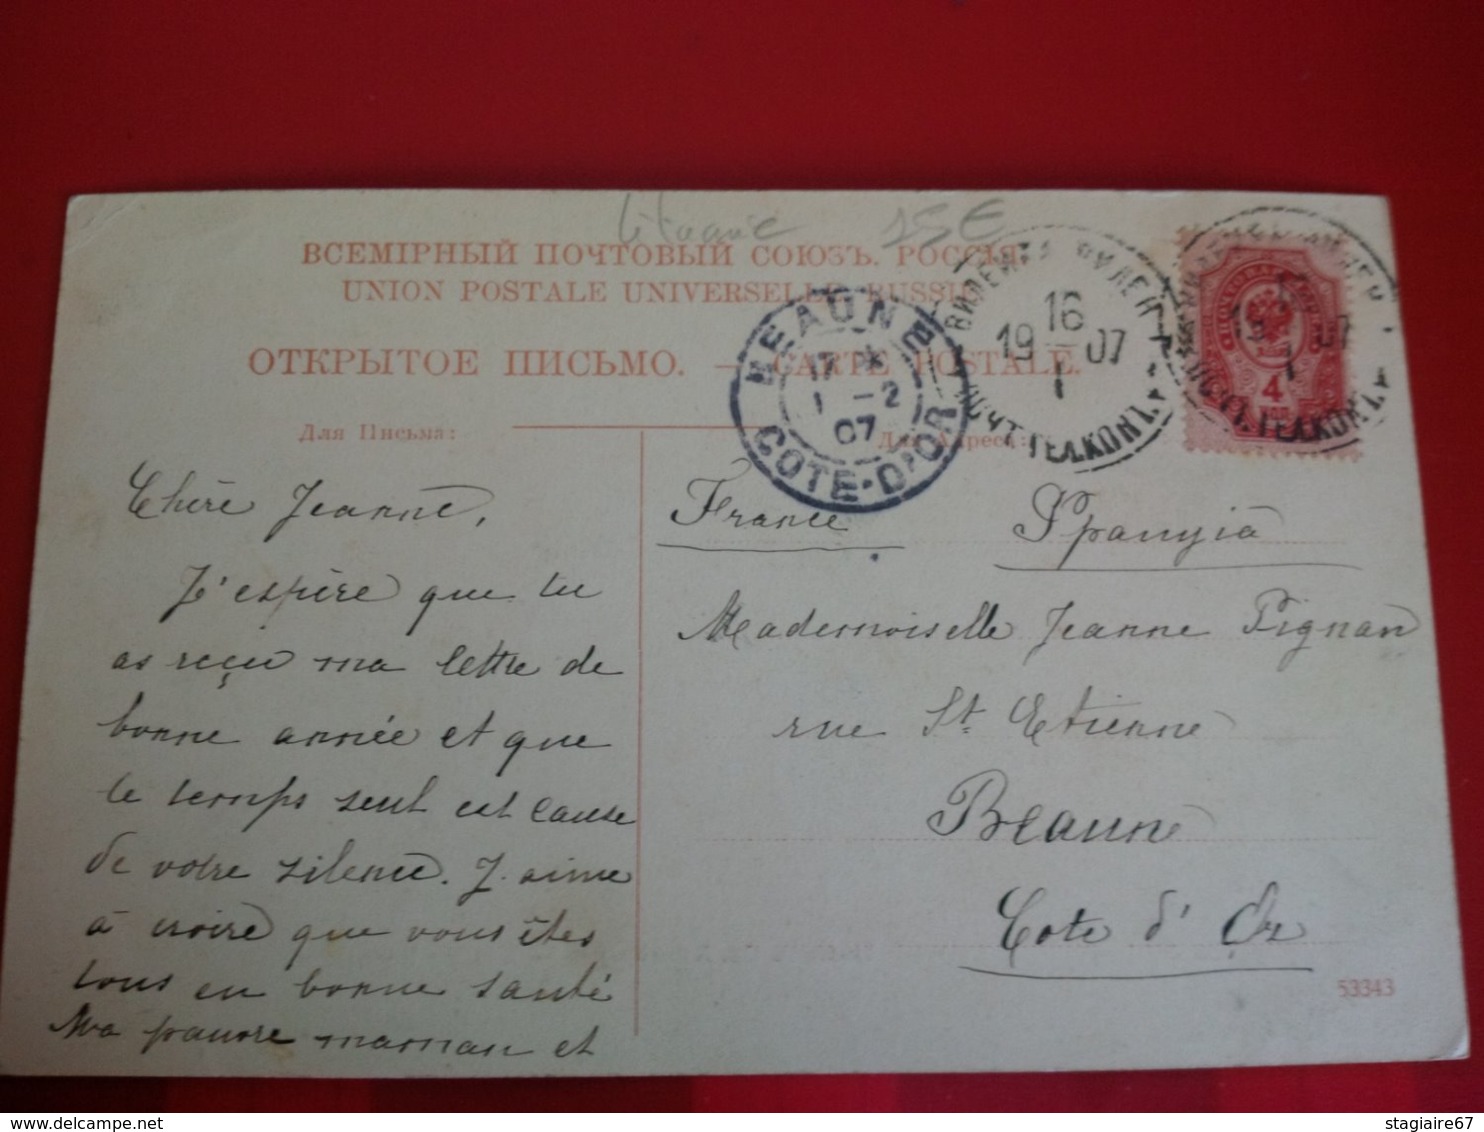 15€
ВСЕМІРНЫЙ ПОЧТОВЫЙ СОЮЗЪ. РОССІЯ.
UNION POSTALE UNIVERSELLE. RUSSIE.
ОТКРЫТОЕ ПИСЬМО. — CARTE POSTALE.
Для Письма:
Для Адреса:
BEAUNE
17
1 -2
07
COTE-D'OR
16
19 07
1
ПОЧТ. ТЕЛ. КОН.
19 07
1
4
Chère Jeanne,
J'espère que tu
as reçu ma lettre de
bonne année et que
le temps seul est cause
de votre silence. J'aime
à croire que vous êtes
tous en bonne santé
Ma pauvre maman et
France
Mademoiselle Jeanne Pignan
rue St Etienne
Beaune
Cote d'Or
53343
stagiaire67